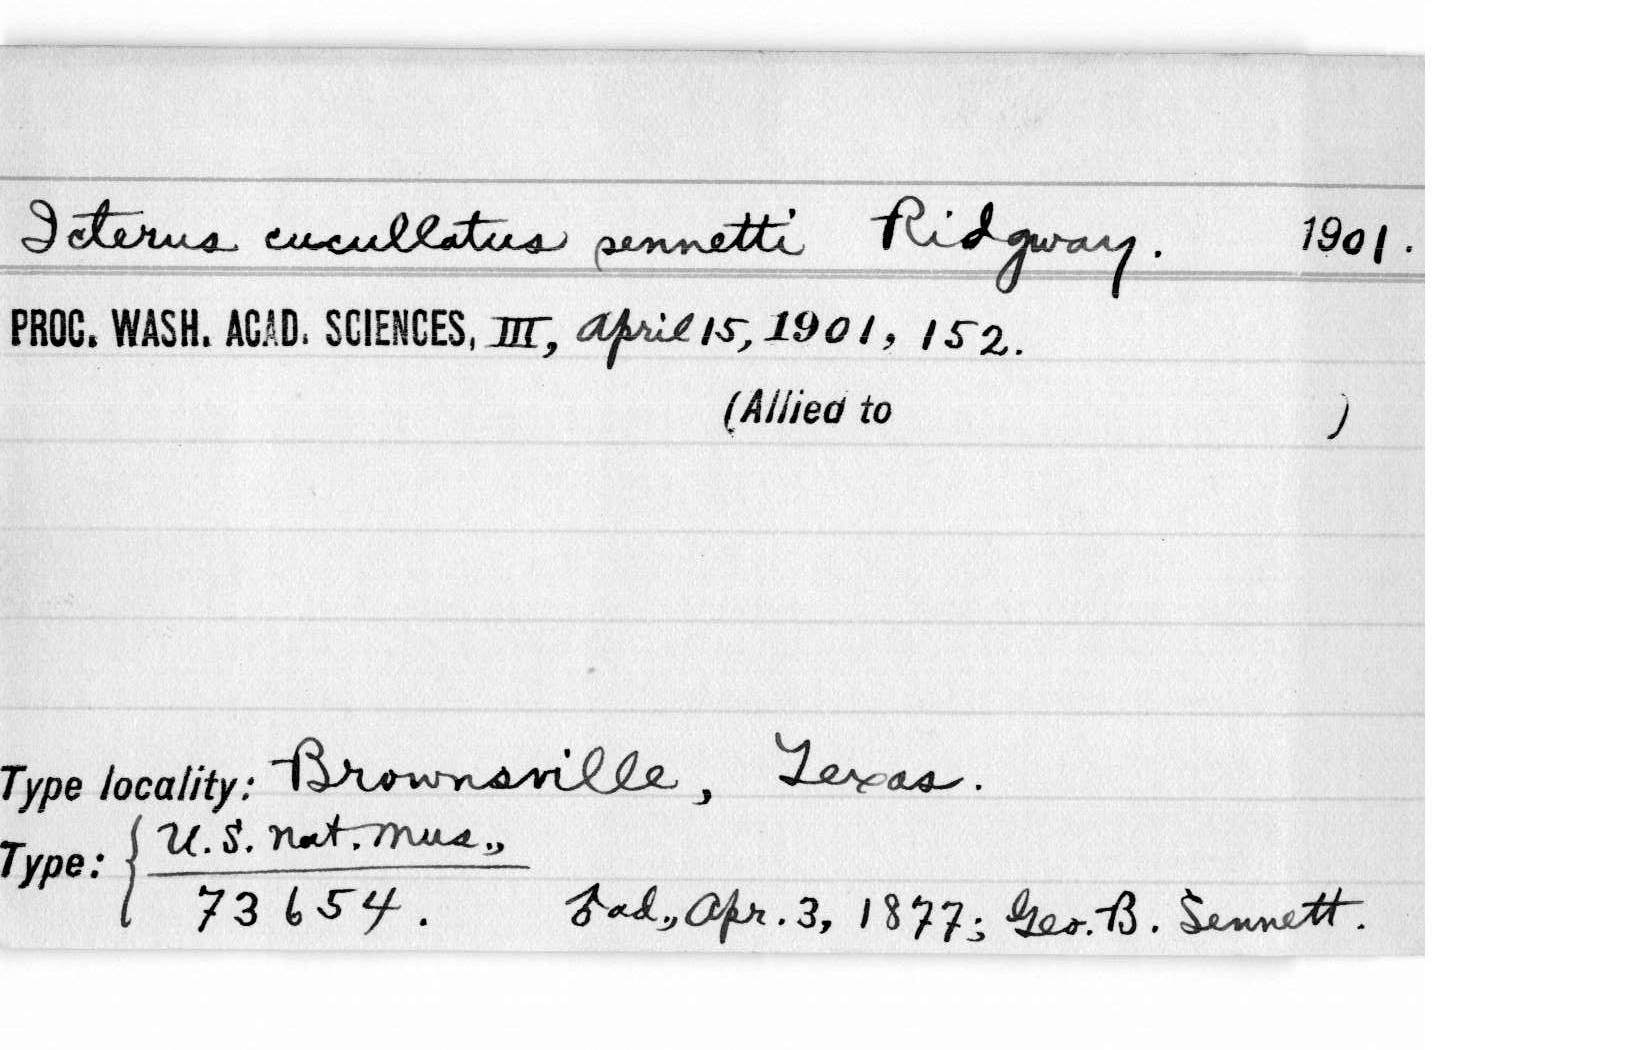 Icterus cucullatus sennetti Ridgway. 1901.
PROC. WASH. ACAD. SCIENCES, III, April 15, 1901, 152.
(Allied to )
Type locality: Brownsville, Texas.
Type: { U.S. Nat. Mus.,
73654. ♂ ad., Apr. 3, 1877; Geo. B. Sennett.